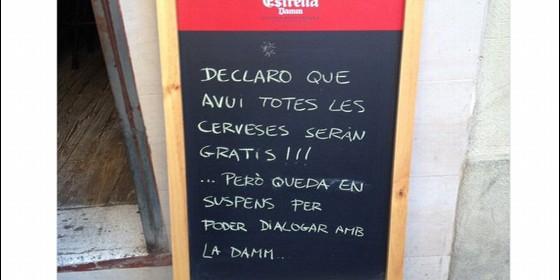 Estrella
Damm
DECLARO QUE
AVUI TOTES LES
CERVESES SERÀN
GRATIS!!!
...PERÒ QUEDA EN
SUSPENS PER
PODER DIALOGAR AMB
LA DAMM...